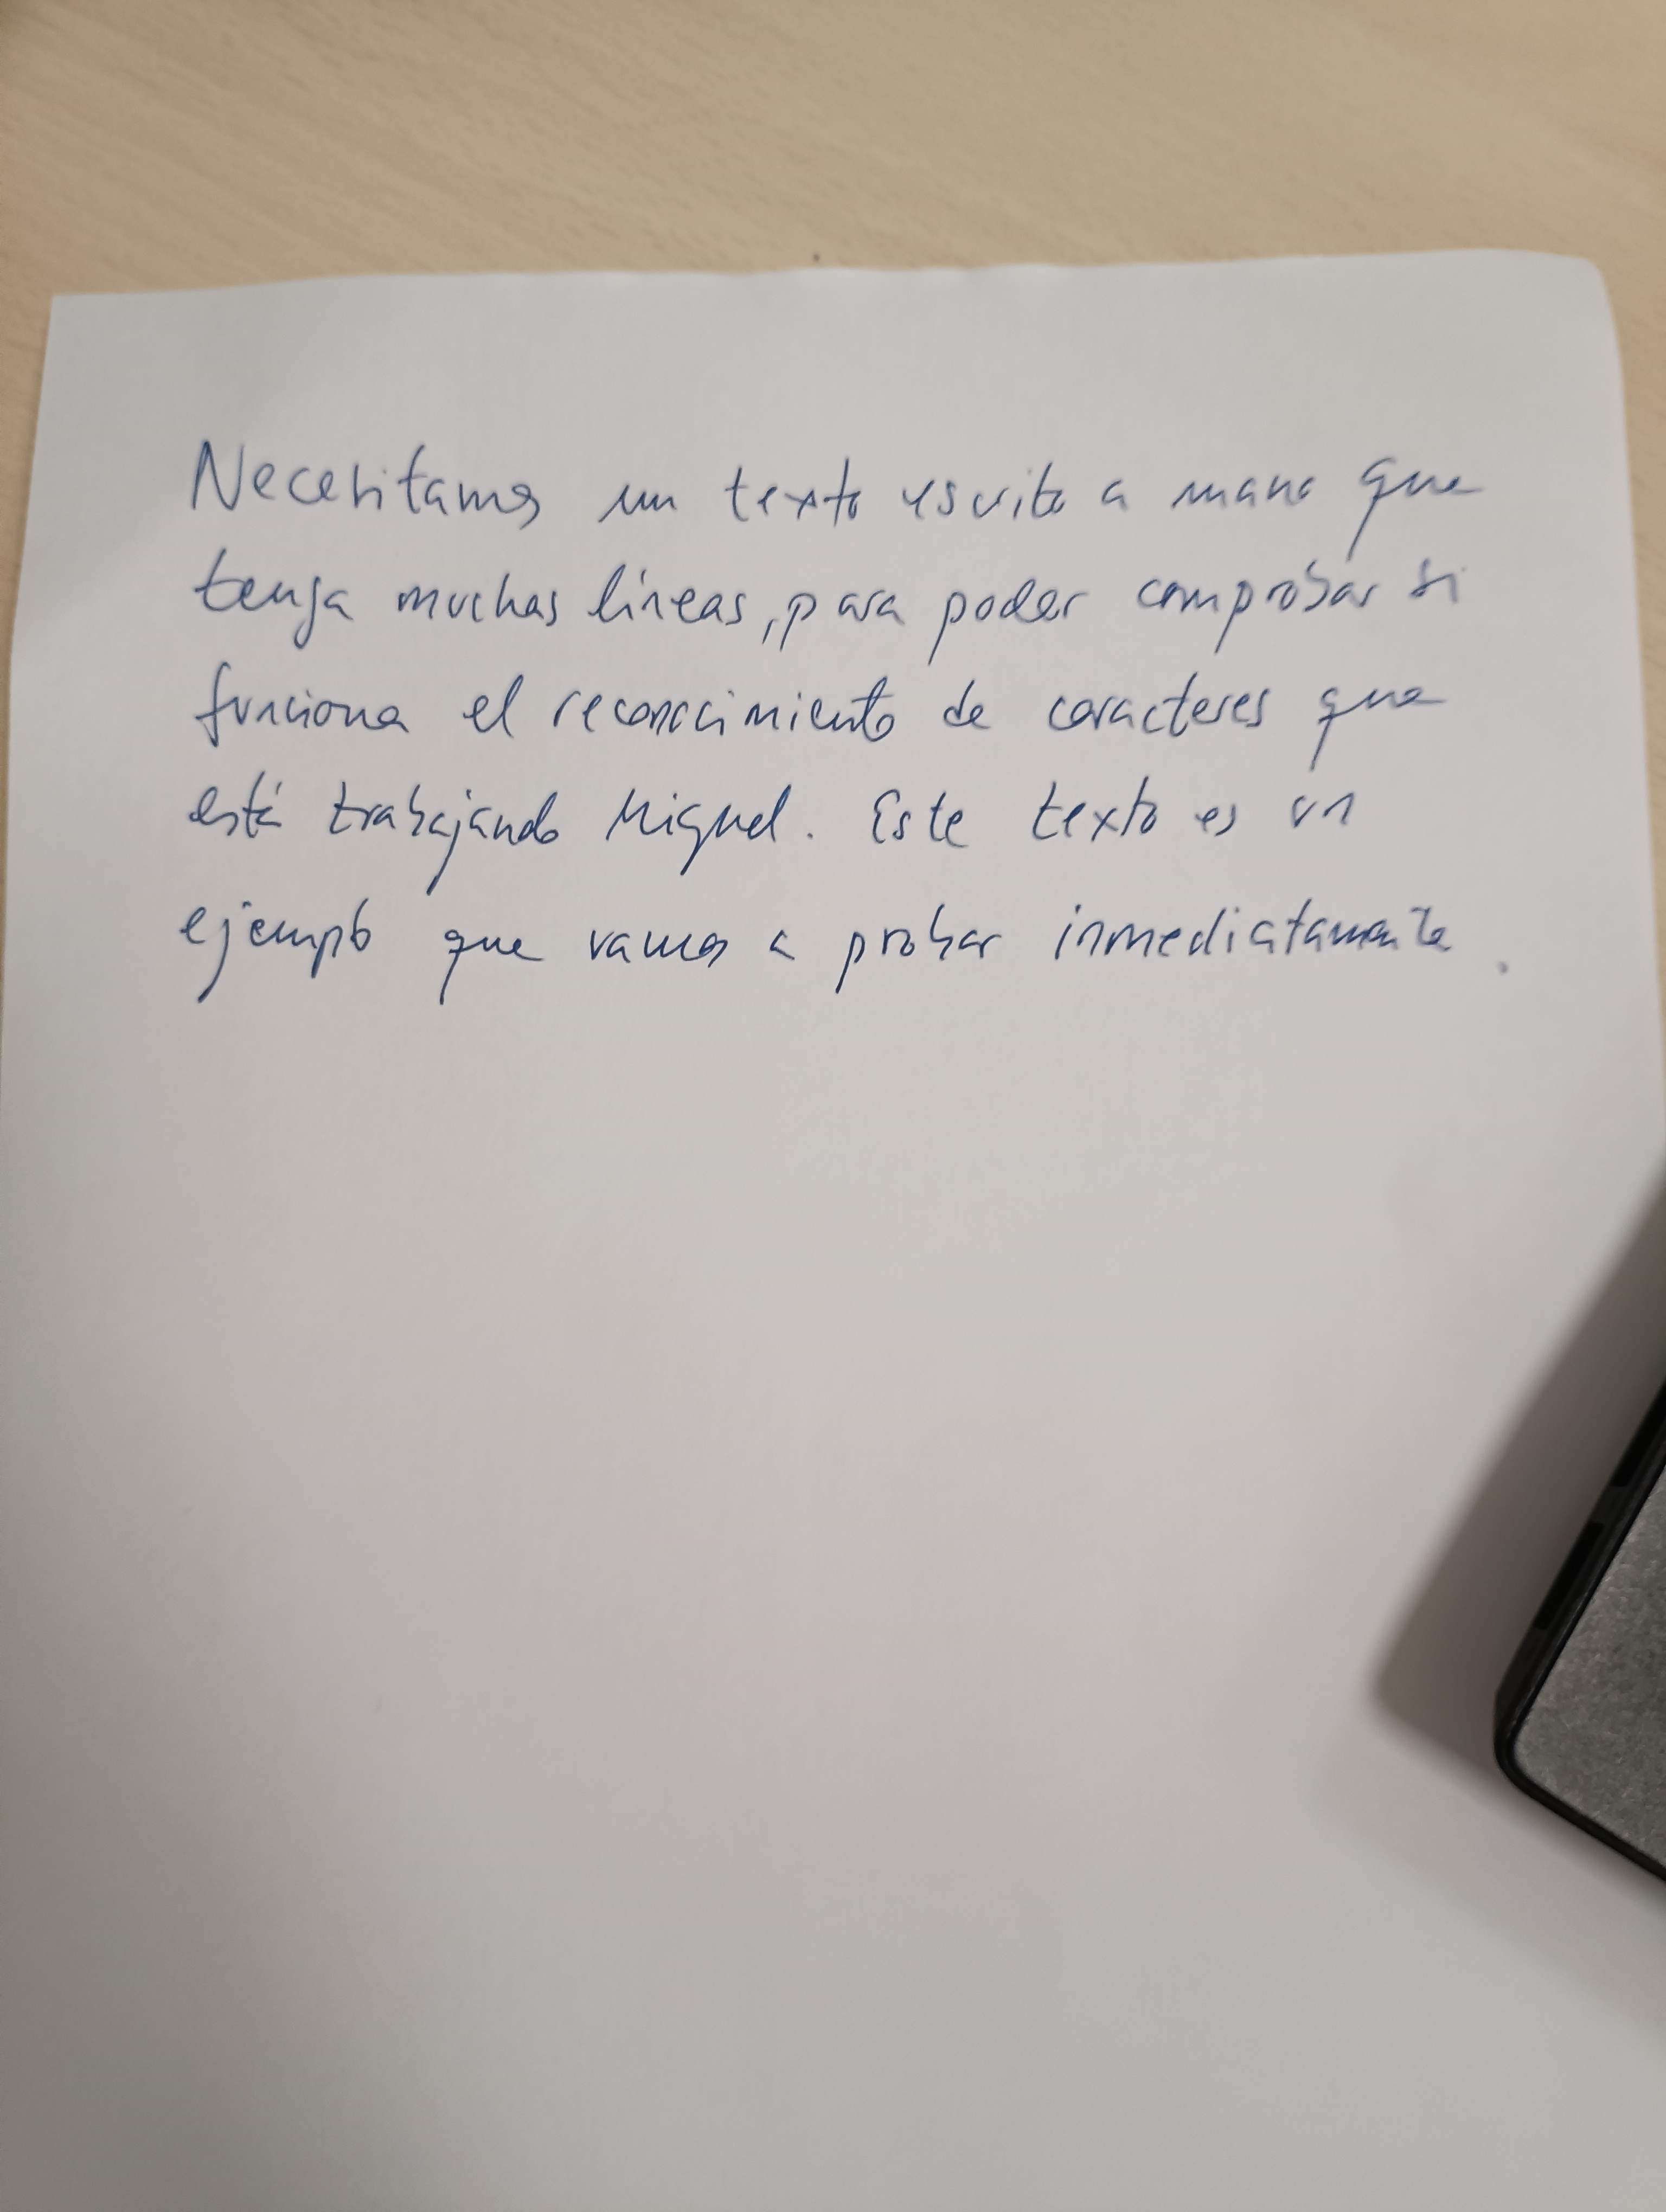 Necesitamos un texto escrito a mano que
tenga muchas líneas, para poder comprobar si
funciona el reconocimiento de caracteres que
está trabajando Miguel. Este texto es un
ejemplo que vamos a probar inmediatamente.